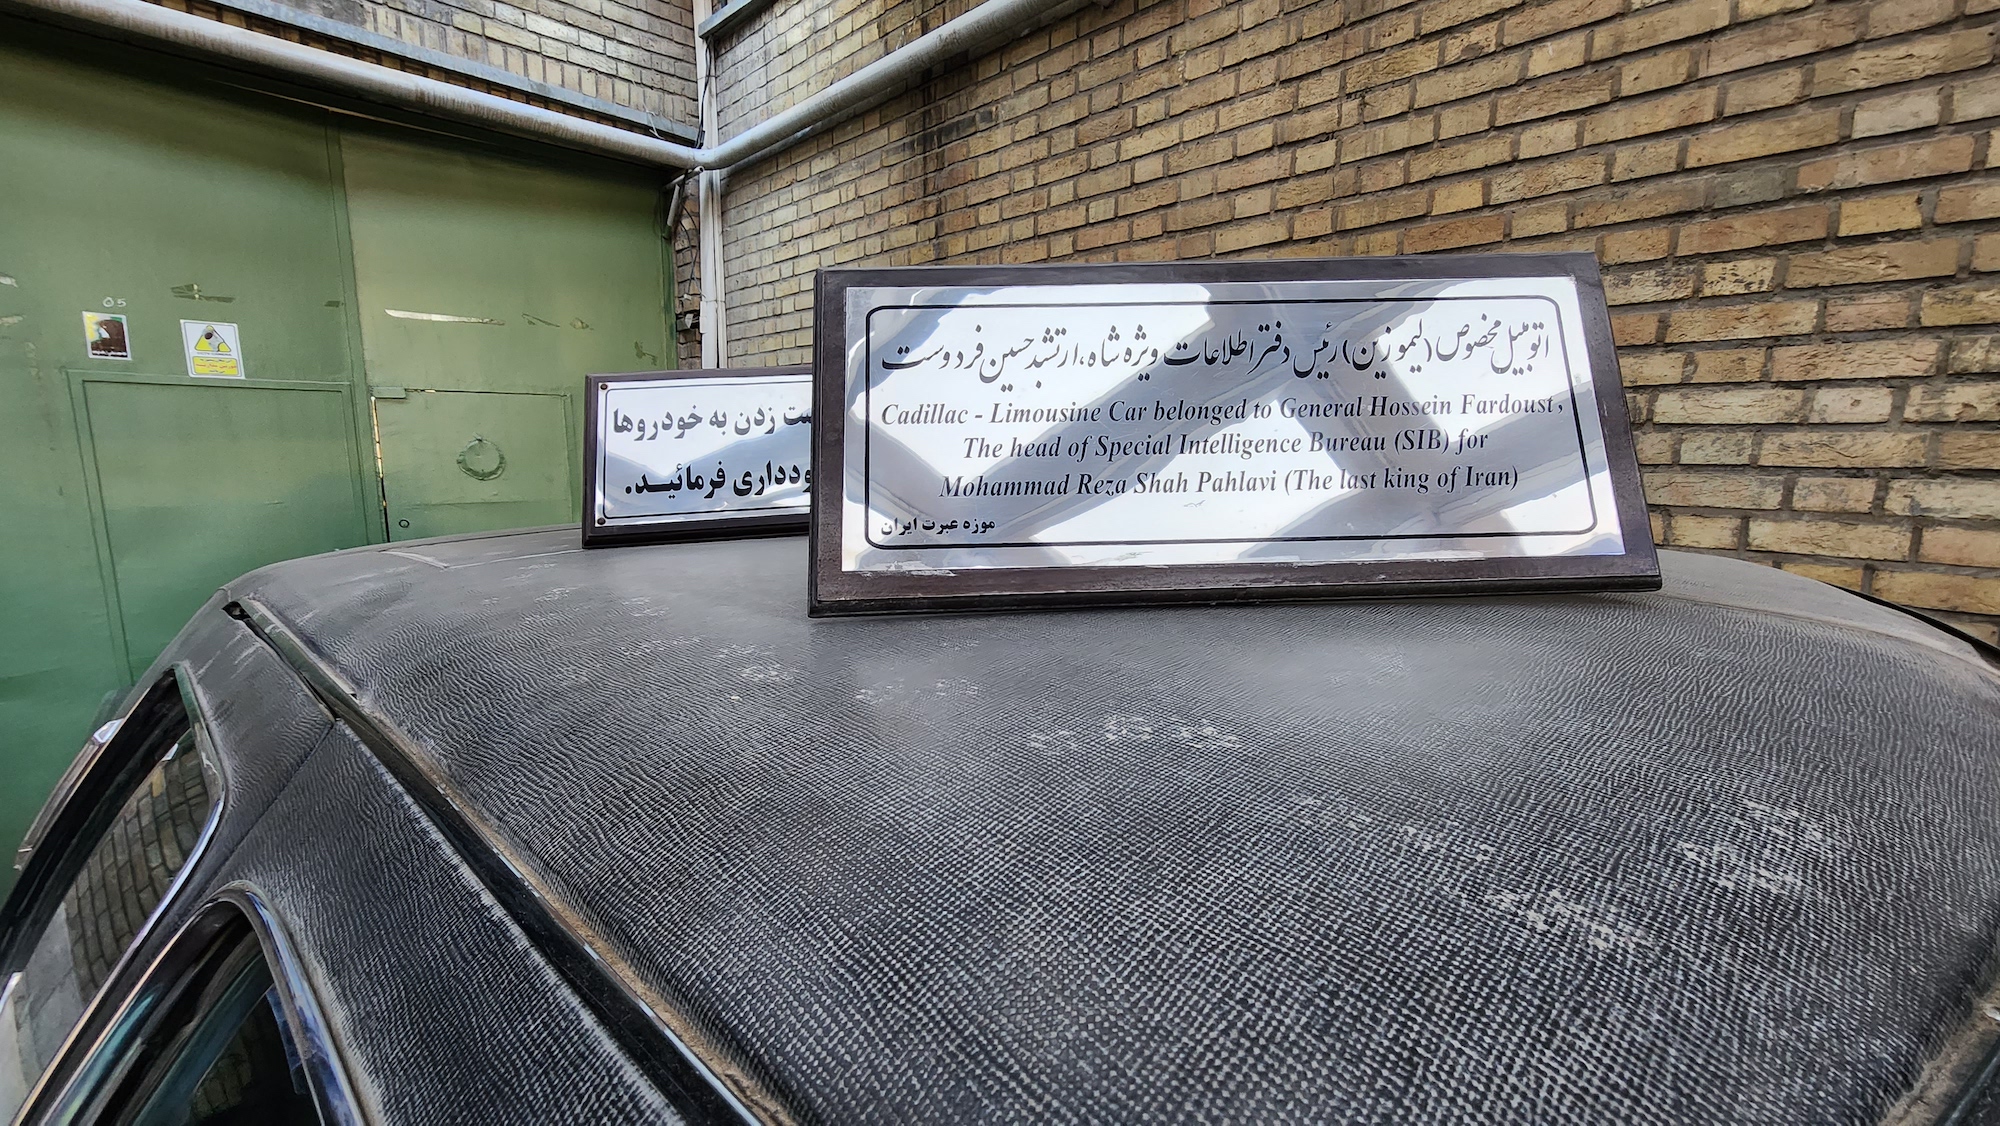 اتومبیل مخصوص (لیموزین) رئیس دفتر اطلاعات ویژه شاه، ارتشبد حسین فردوست
Cadillac - Limousine Car belonged to General Hossein Fardoust,
The head of Special Intelligence Bureau (SIB) for
Mohammad Reza Shah Pahlavi (The last king of Iran)
موزه عبرت ایران
زدن به خودروها
فرمائید.
05